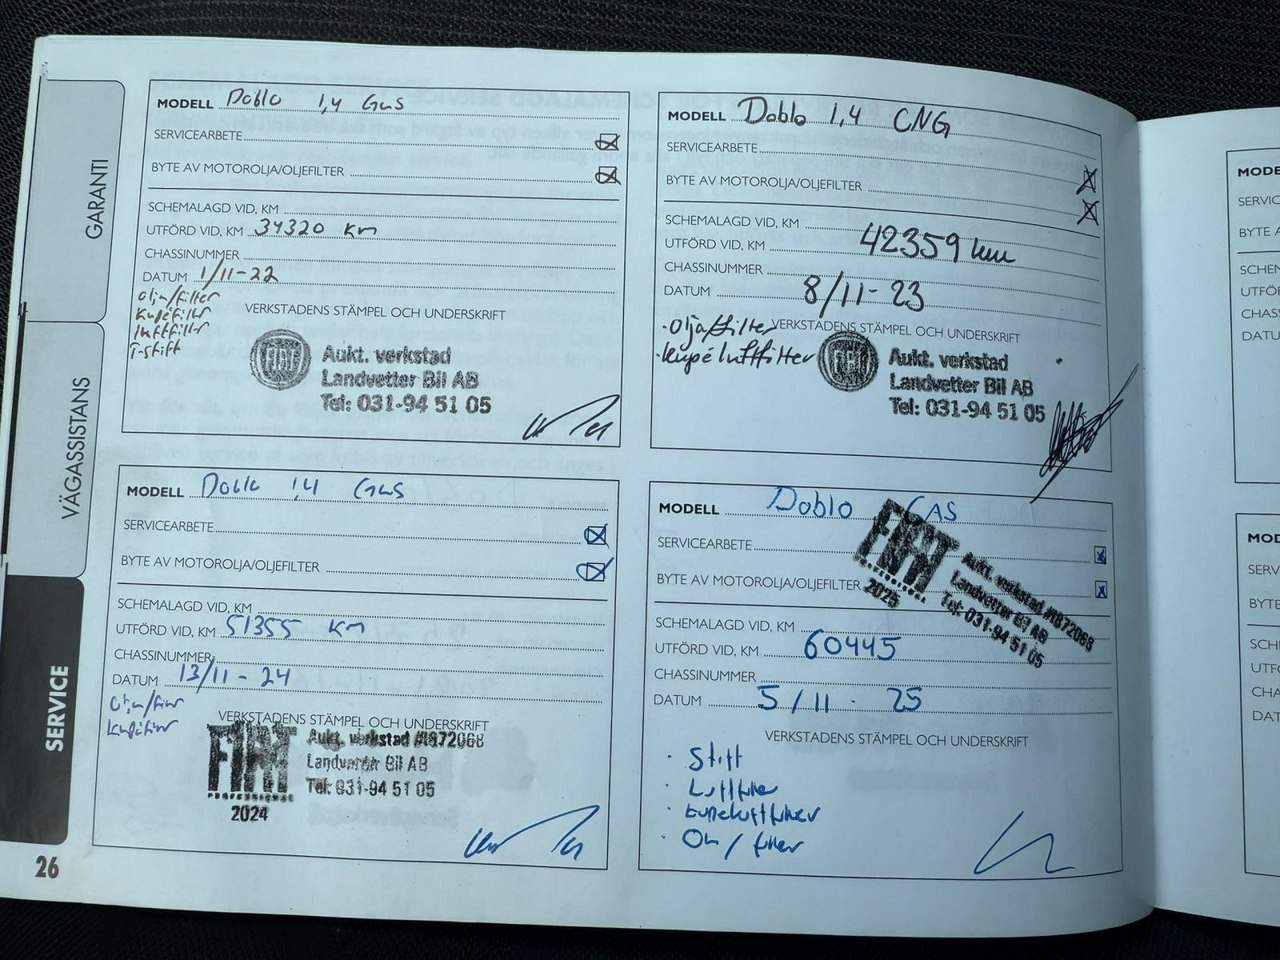 GARANTI
VÄGASSISTANS
SERVICE
26
MODELL Doblo 1,4 Gas
SERVICEARBETE
BYTE AV MOTOROLJA/OLJEFILTER
SCHEMALAGD VID, KM
UTFÖRD VID, KM 34320 km
CHASSINUMMER
DATUM 1/11-22
olja/filter
Kupéfilter
luftfilter
T-stift
VERKSTADENS STÄMPEL OCH UNDERSKRIFT
FIAT
Aukt. verkstad
Landvetter Bil AB
Tel: 031-94 51 05
MODELL Doblo 1,4 CNG
SERVICEARBETE
BYTE AV MOTOROLJA/OLJEFILTER
SCHEMALAGD VID, KM
UTFÖRD VID, KM 42359 km
CHASSINUMMER
DATUM 8/11-23
VERKSTADENS STÄMPEL OCH UNDERSKRIFT
· olja/filter
· kupéluftfilter
FIAT
Aukt. verkstad
Landvetter Bil AB
Tel: 031-94 51 05
MODELL Doblo 1,4 Gas
SERVICEARBETE
BYTE AV MOTOROLJA/OLJEFILTER
SCHEMALAGD VID, KM
UTFÖRD VID, KM 51355 km
CHASSINUMMER
DATUM 13/11-24
VERKSTADENS STÄMPEL OCH UNDERSKRIFT
FIAT
PROFESSIONAL
2024
Aukt. verkstad #1872068
Landvetter Bil AB
Tel: 031-94 51 05
MODELL Doblo GAS
SERVICEARBETE
BYTE AV MOTOROLJA/OLJEFILTER
FIAT
PROFESSIONAL
2025
Aukt. verkstad #1872068
Landvetter Bil AB
Tel: 031-94 51 05
SCHEMALAGD VID, KM
UTFÖRD VID, KM 60445
CHASSINUMMER
DATUM 5/11 - 25
VERKSTADENS STÄMPEL OCH UNDERSKRIFT
· Stift
· Luftfilter
· kupeluftfilter
· Olja/filter
MODE
SERVIC
BYTE A
SCHEM
UTFÖ
CHASS
DATU
MOD
SERV
BYTE
SCH
UTFÖ
CHA
DAT